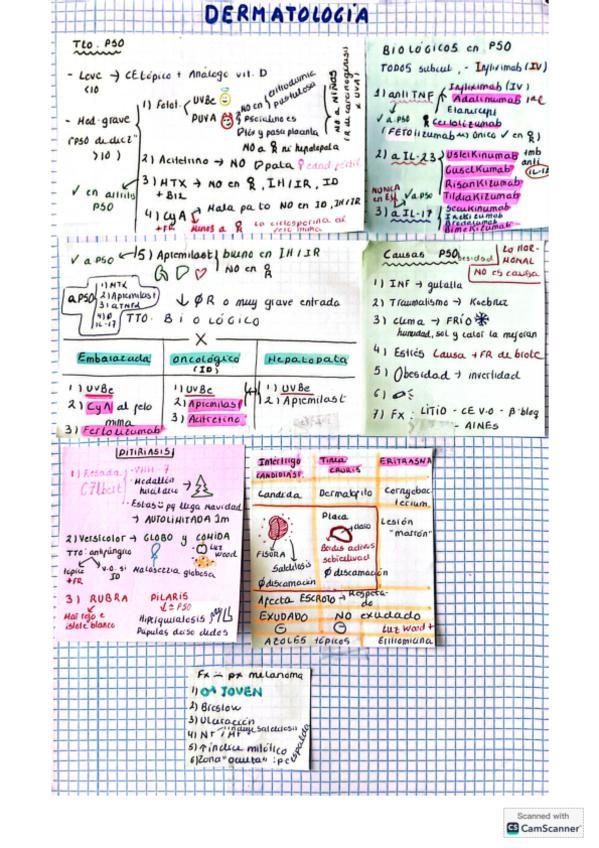 DERMATOLOGÍA
Tto. PSO
- Leve → CE tópico + Análogo vit. D
<10
- Mod-grave
>10
1) Fotot.
UVBe
PUVA
NO en
eritrodermia
pustulosa
Psoraleno es
NO a ♀ ni hepatópata
NO A NIÑOS
(FR de carcinogénesis
x UVA)
2) Acitetino → NO
♀ edad fértil
3) MTX → NO en ♀, IH/IR, ID
+ B12
✓ en artritis
PSO
4) CyA
+FR
Mala pa to NO en ID, IH/IR
La ciclosporina al
BIOLÓGICOS en PSO
TODOS subcut, - Infliximab (IV)
1) anti TNF
Infliximab (IV)
Adalimumab
Etanercept
Certolizumab
✓ a PSO
único ✓ en ♀)
2) a IL-23
Ustekinumab
Guselkumab
Risankizumab
Tildrakizumab
NUNCA
en EII
✓ a PSO
3) a IL-17
Secukinumab
Ixekizumab
Brodalumab
Bimekizumab
✓ a PSO
5) Apremilast
bueno en IH/IR
NO en ♀
a PSO
1) MTX
2) Apremilast
3) aTNFα
IL-17
↓ ØR o muy grave entrada
TTO. BIOLÓGICO
Embarazada
Oncológico
(ID)
Hepatópata
1) UVBe
2) CyA al pelo
mima
3) Certolizumab
1) UVBe
2) Apremilast
3) Acitretino
1) UVBe
2) Apremilast
Causas PSO
Obesidad
LO HOR-
MONAL
NO es causa
1) INF → gutatta
2) Traumatismo → Koebner
3) clima → FRÍO
humedad, sol y calor la mejoran
4) Estrés causa + FR de brote
5) Obesidad → invertida
6)
7) Fx: LITIO - CE V.O - β-bloq
- AINEs
PITIRIASIS
1) Rosada
C/Gibert
- VHH-7
- Medallón
heráldico →
- Estas pq llega navidad
→ AUTOLIMITADA 1m
2) Versicolor → GLOBO y COMIDA
TTO: antifúngico
tópico
+FR
v.o. si
ID
Malassezia globosa
Luz
Wood
3) RUBRA
islote blanco
PILARIS
≃ PSO
Hiperqueratosis
Pápulas dorso dedos
Intertrigo
CANDIDIÁSI.
Tinea
CRURIS
ERITRASMA
Candida
Dermatofito
Corynebac
terium.
FISURA
Satelitosis
Ø descamación
Placa
Bordes activos
Ø descamación
Lesión
"marrón"
Afecta ESCROTO → Respeta-
do
EXUDADO
NO exudado
AZOLES tópicos
Luz Wood +
Eritromicina
Fx ≃ px melanoma
1) ♂ JOVEN
2) Breslow
3) Ulceración
4) N+ / M+
incluye satelitosis
5) ↑ índice mitótico
6) Zona "oculta": pe espalda
Scanned with
CS CamScanner